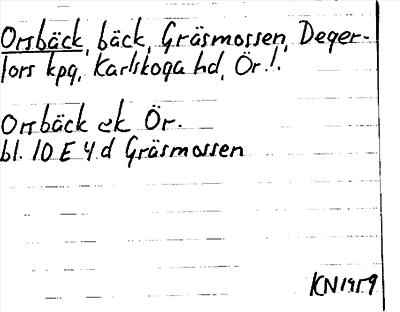 Orrbäck, bäck, Gräsmossen, Deger-
fors kpg, Karlskoga hd, Ör!.
Orrbäck ek Ör.
bl. 10 E 4 d Gräsmossen
KN1959